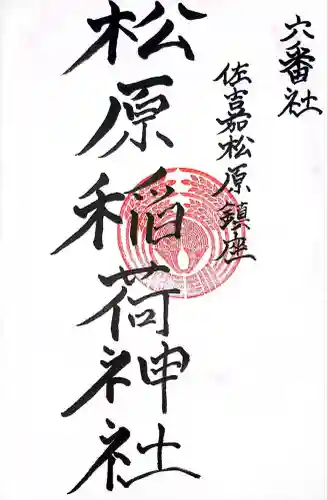 六番社
佐吉嘉松原鎮座
松原稲荷神社